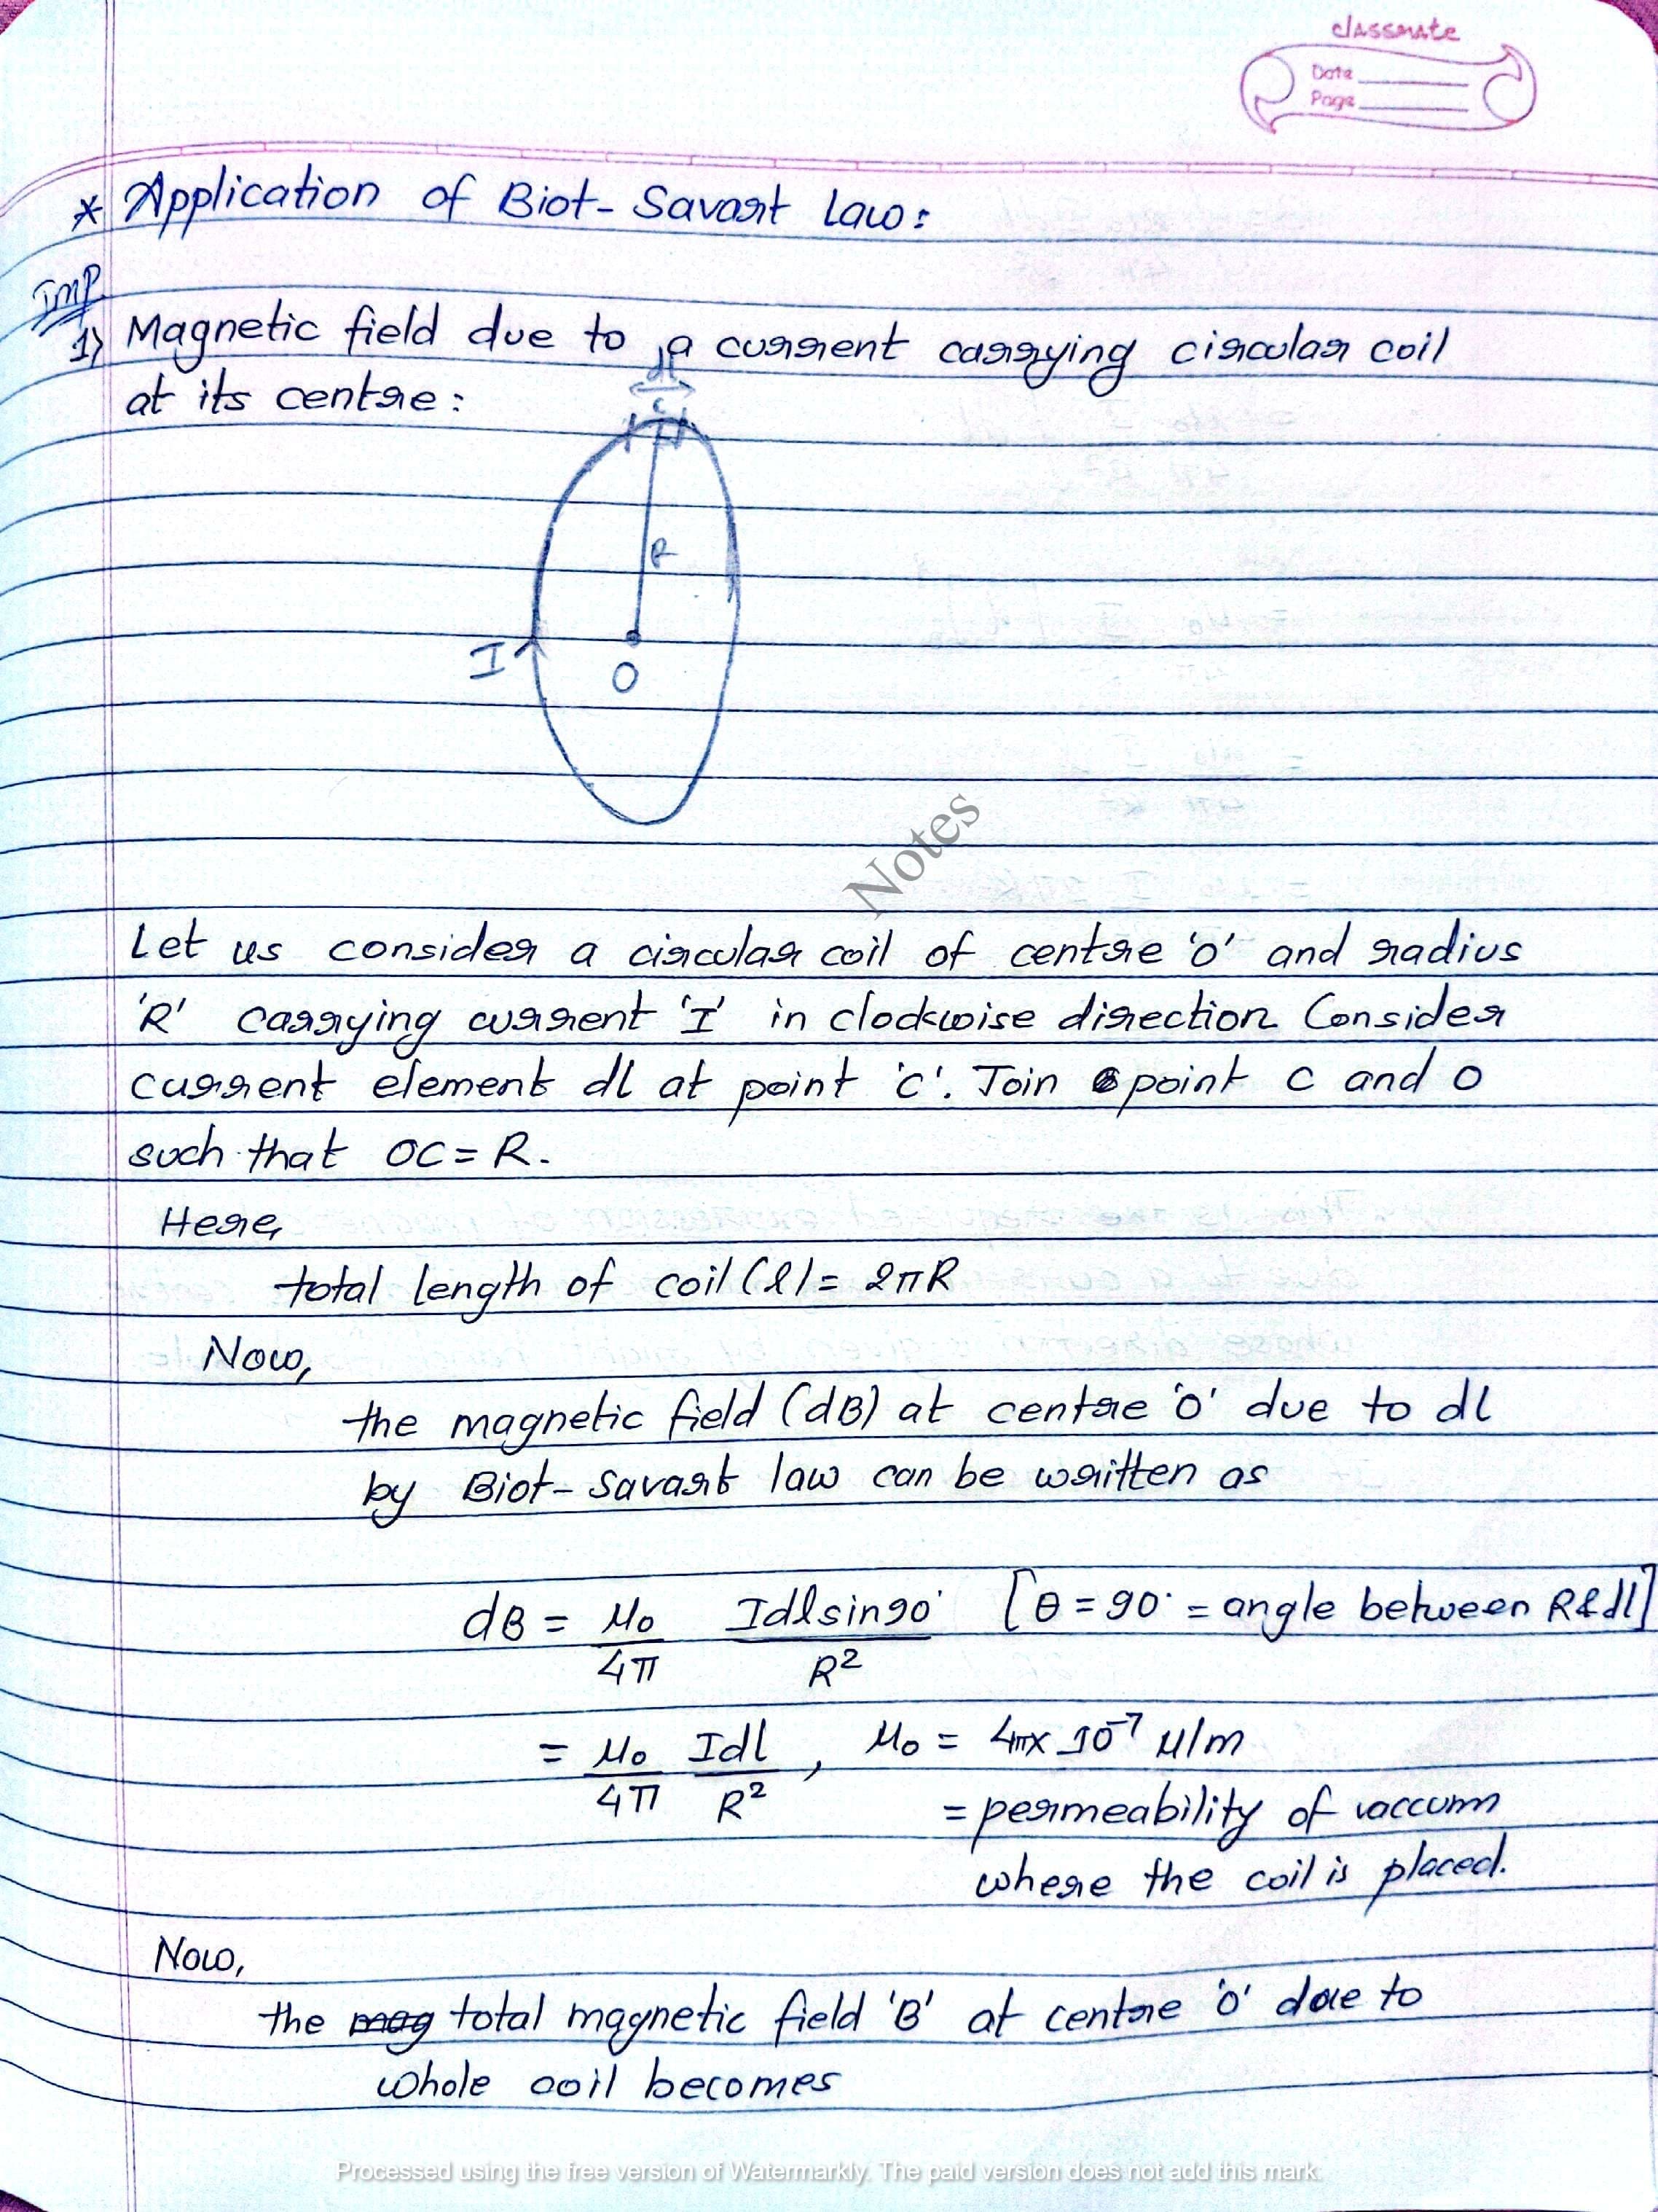 classmate
Date
Page
* Application of Biot-Savart Law:
Imp
1) Magnetic field due to a current carrying circular coil
at its centre:
dl
c
R
I
O
Notes
Let us consider a circular coil of centre 'O' and radius
'R' carrying current 'I' in clockwise direction. Consider
current element dl at point 'C'. Join point C and O
such that OC = R.
Here,
total length of coil (l) = 2πR
Now,
the magnetic field (dB) at centre 'O' due to dl
by Biot-Savart law can be written as
dB = μ₀/4π Idlsin90°/R² [θ = 90° = angle between R & dl]
= μ₀/4π Idl/R² , μ₀ = 4π× 10⁻⁷ H/m
= permeability of vaccum
where the coil is placed.
Now,
the mag total magnetic field 'B' at centre 'O' due to
whole coil becomes
Processed using the free version of Watermarkly. The paid version does not add this mark.